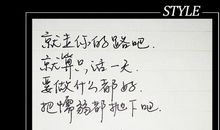 STYLE
就走你的路吧.
就算只活一天.
要做什么都好.
把懦弱都抛下吧.